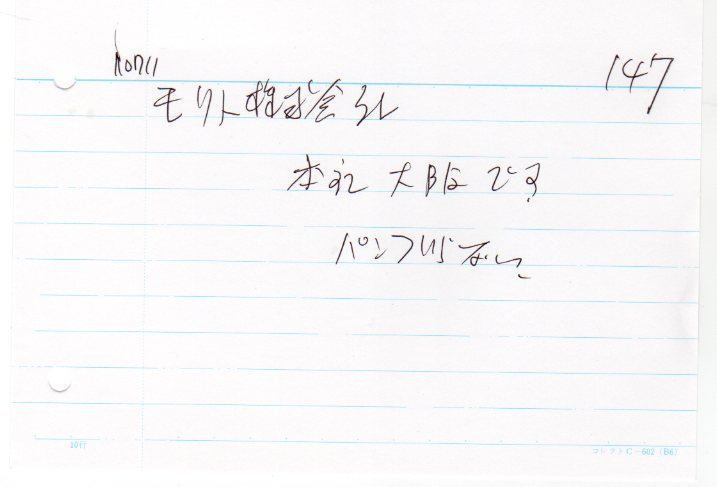 147
モリト株式会社
本社 大阪です
パンフいらない
10行
コレクトC-602(B6)